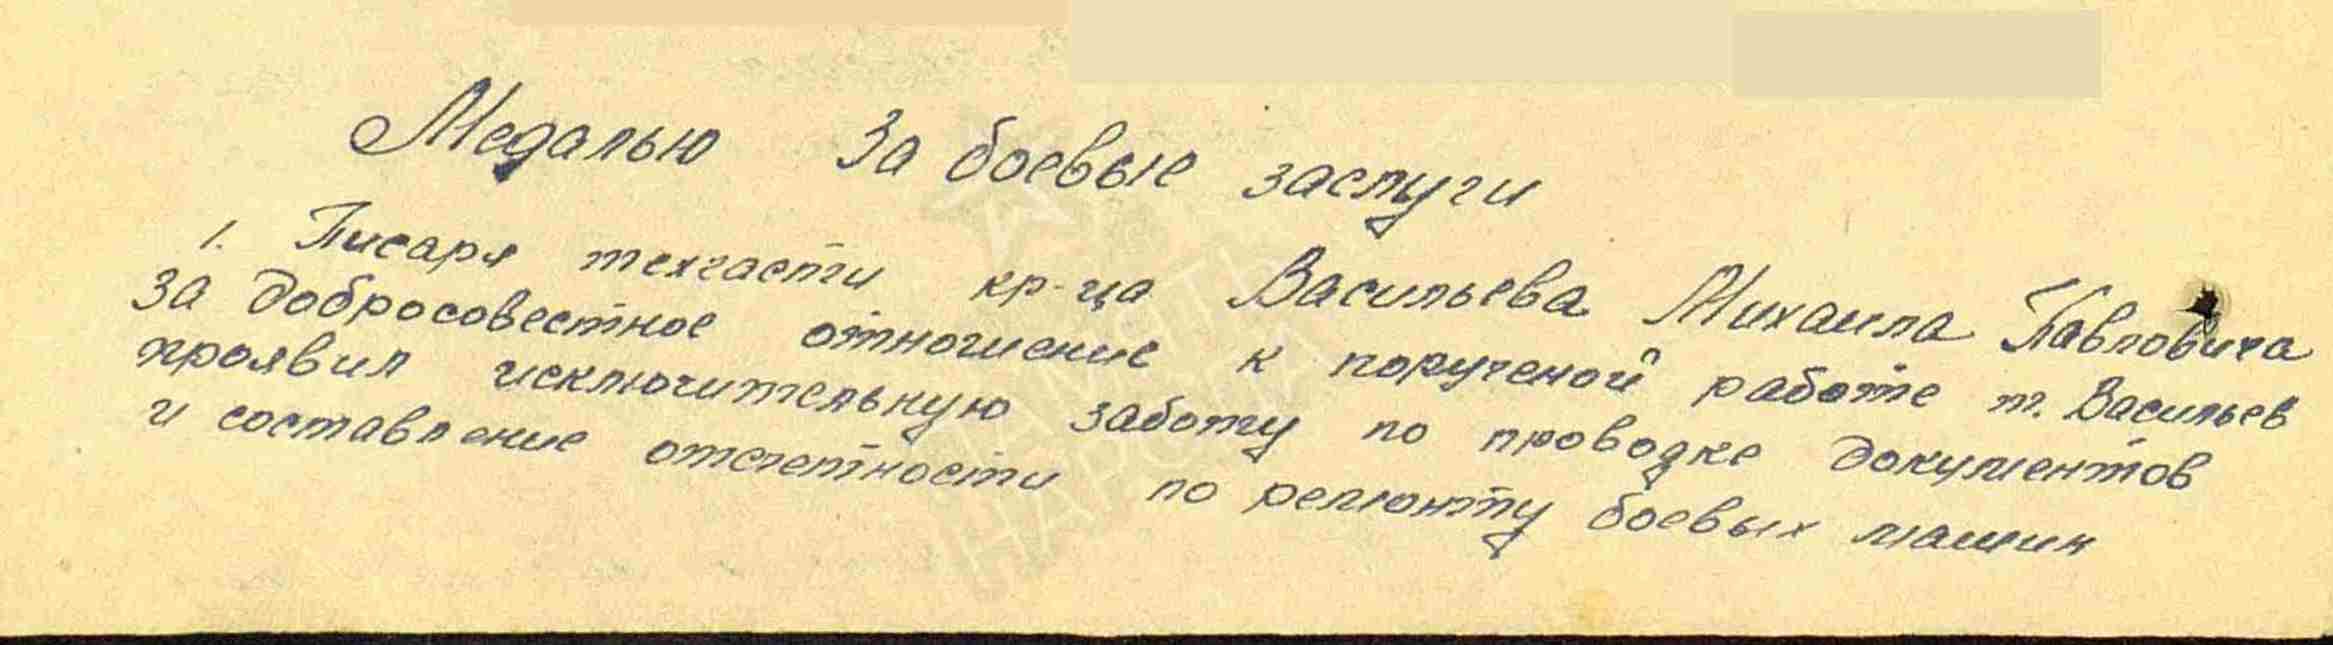 Медалью За боевые заслуги
1. Писаря техчасти кр-ца Васильева Михаила Павловича
за добросовестное отношение к порученой работе т. Васильев
проявил исключительную заботу по проводке документов
и составление отсчетности по ремонту боевых машин
ПАМЯТЬ
НАРОДА